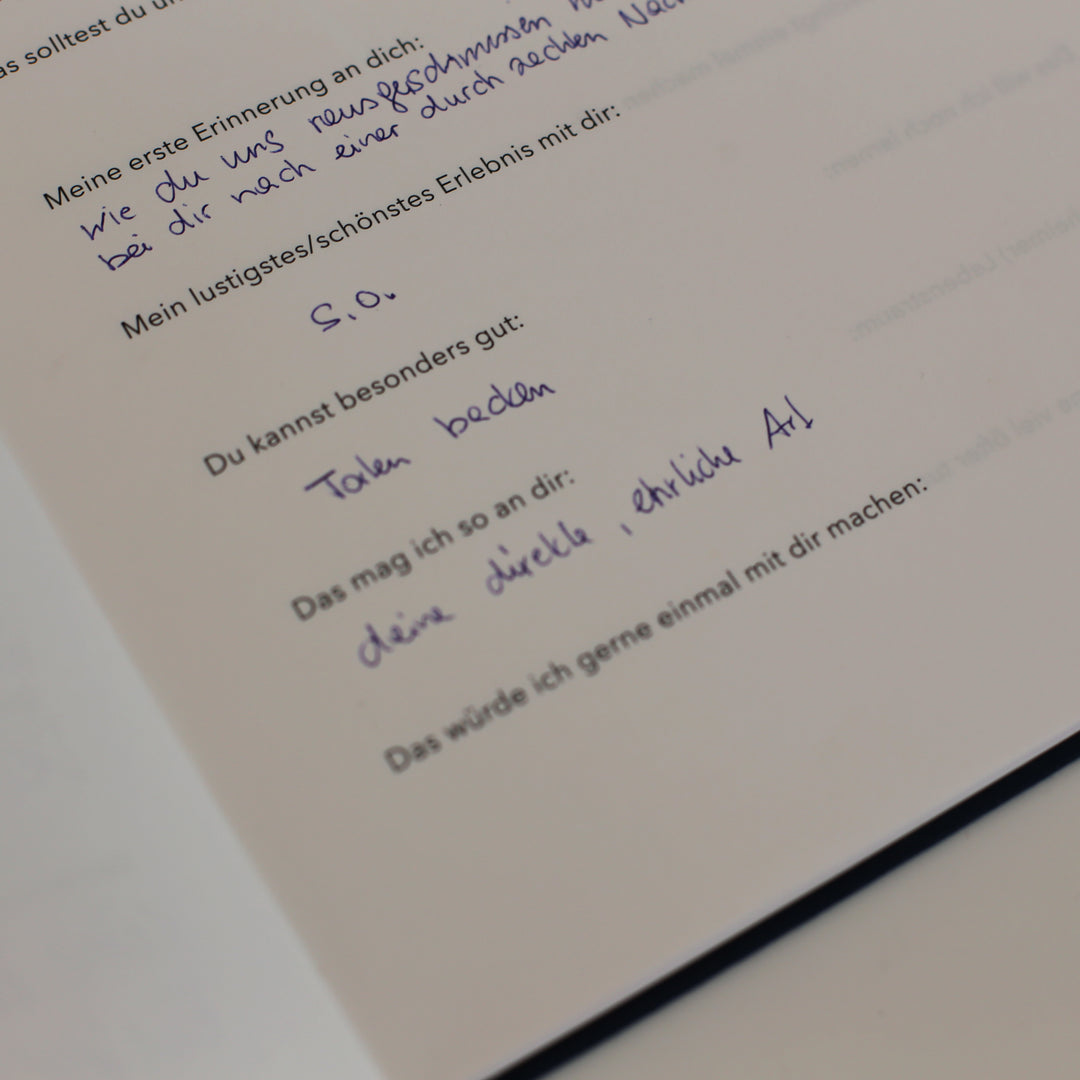 as solltest du un
Meine erste Erinnerung an dich:
wie du uns rausgeschmissen
bei dir nach einer durch zechten Nac
Mein lustigstes/schönstes Erlebnis mit dir:
S.O.
Du kannst besonders gut:
Torten backen
Das mag ich so an dir:
deine direkte, ehrliche Art
Das würde ich gerne einmal mit dir machen: